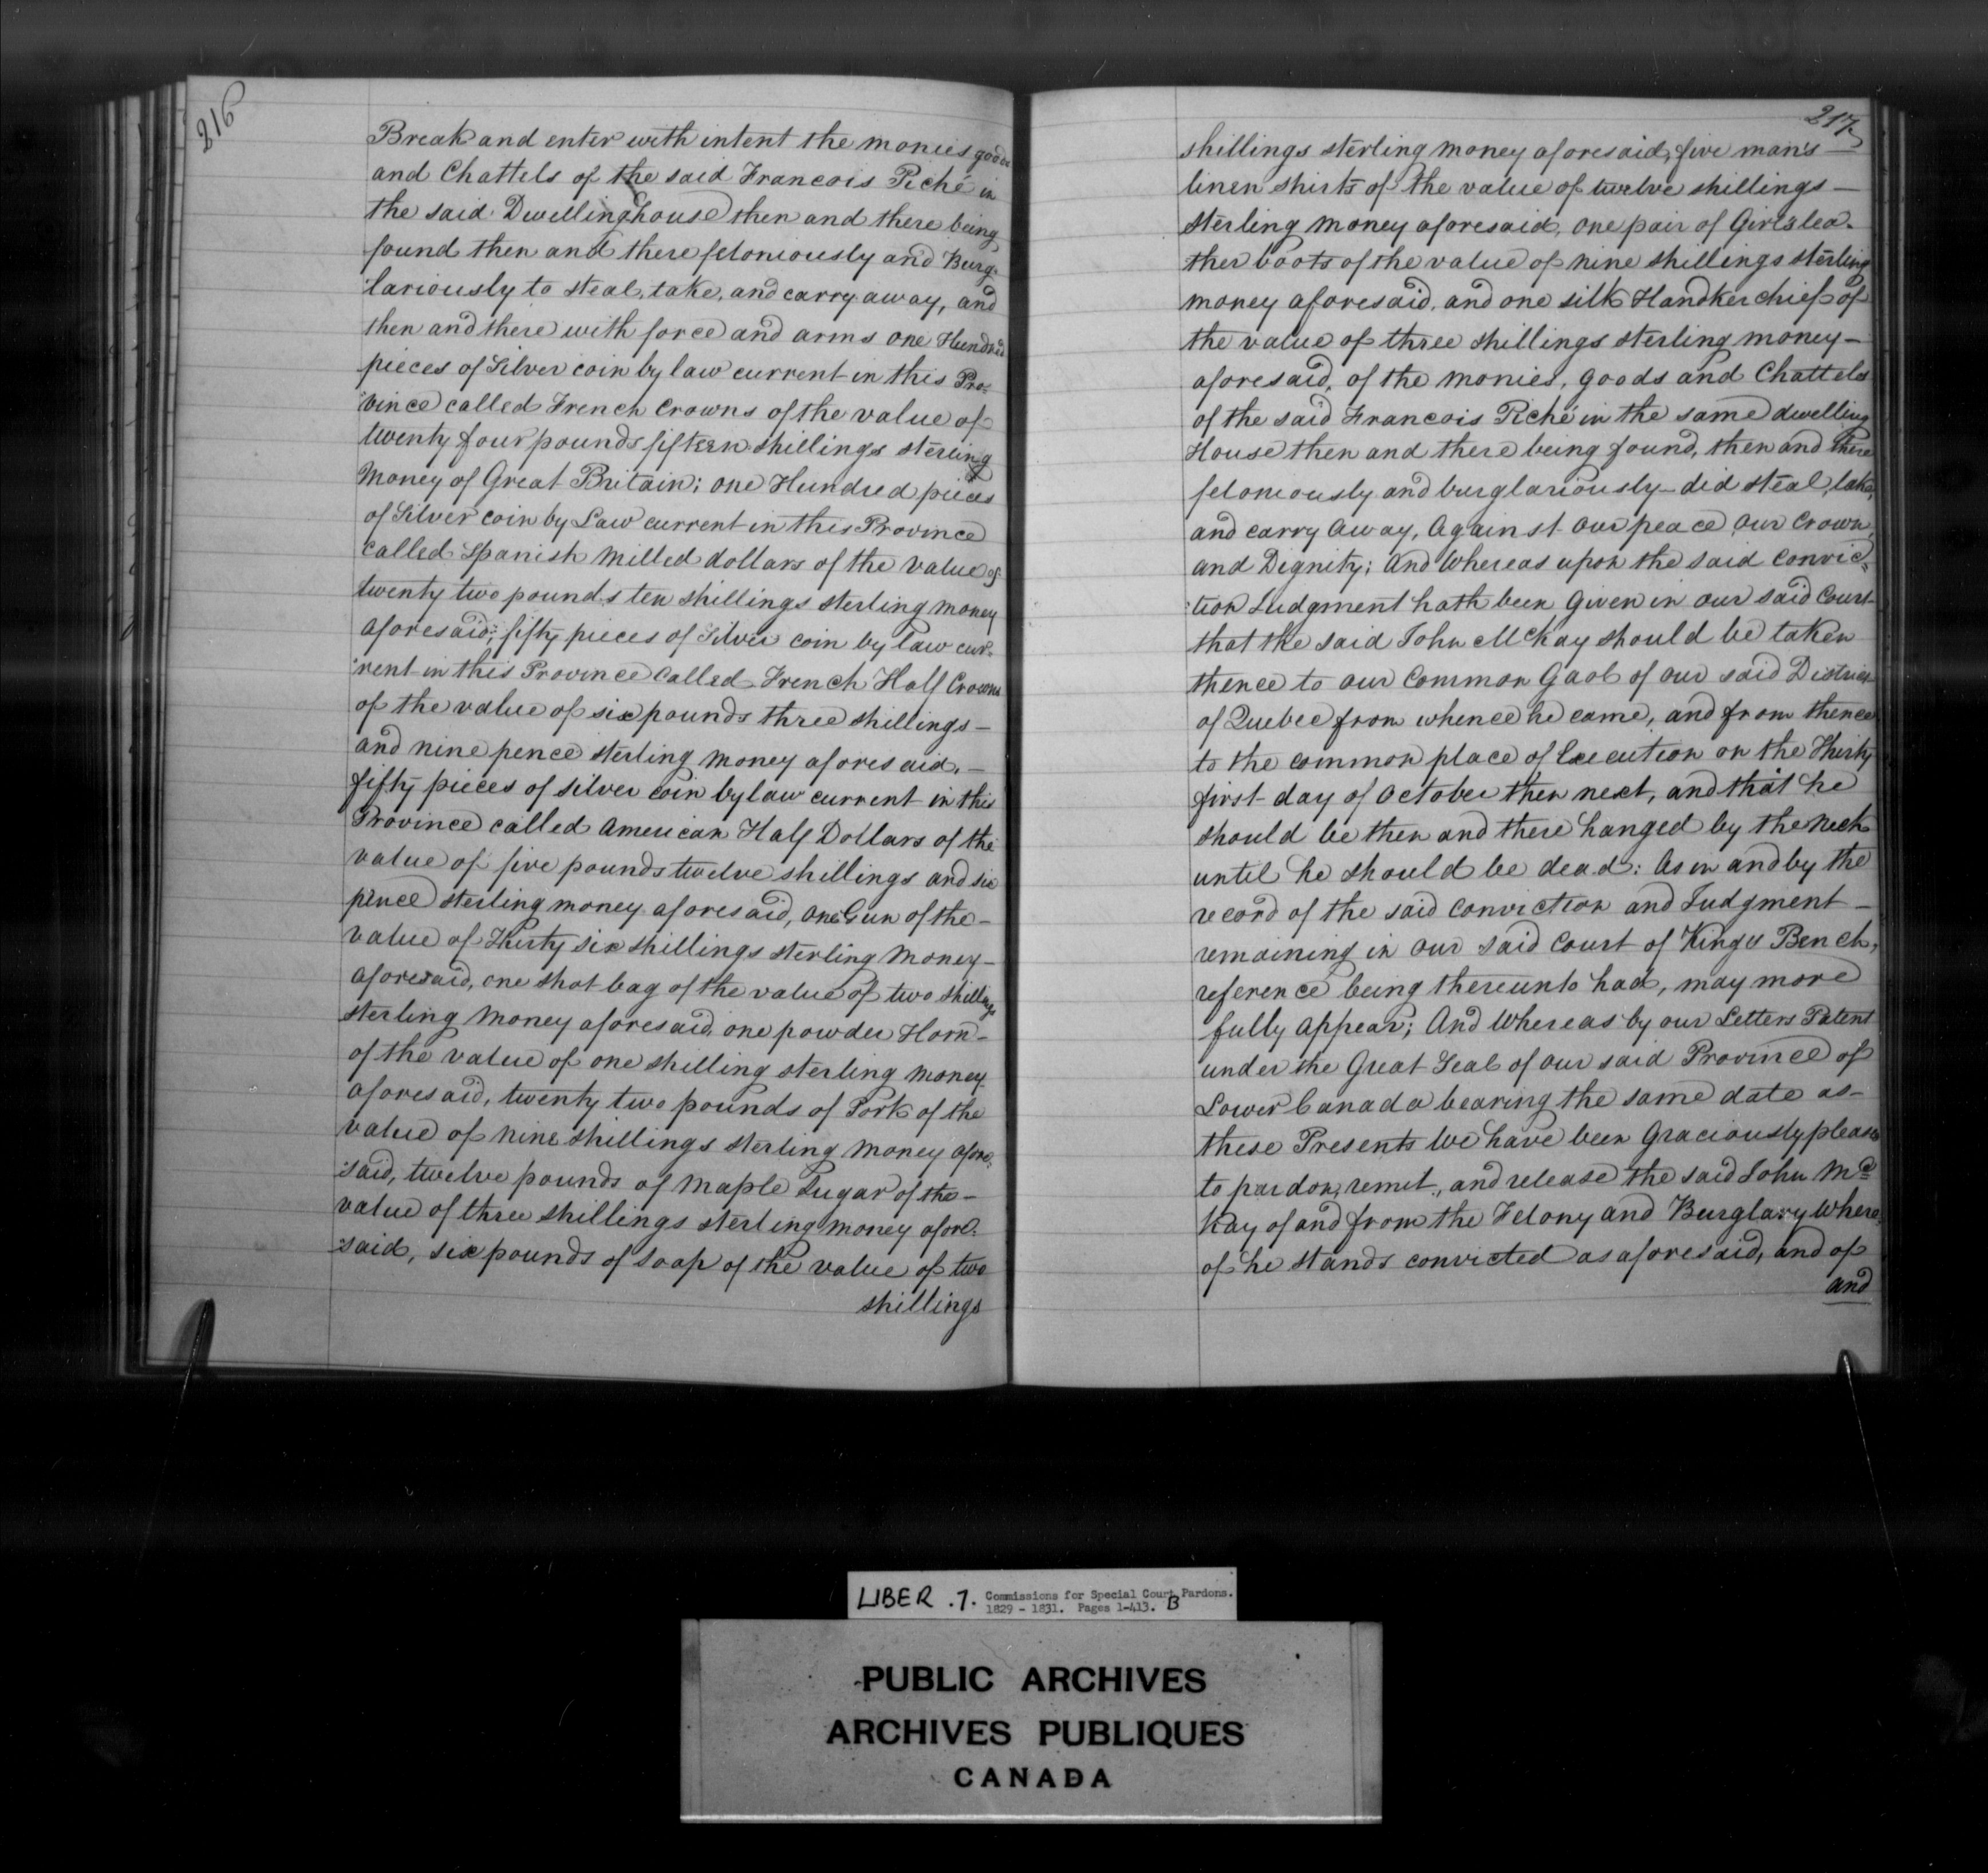 216
Break and enter with intent the monies goods
and Chattels of the said Francois Piché in
the said Dwelling house then and there being
found then and there feloniously and Burg-
lariously to steal, take, and carry away, and
then and there with force and arms one Hundred
pieces of Silver coin by law current in this Pro-
vince called French Crowns of the value of
twenty four pounds fifteen shillings sterling
Money of Great Britain; one Hundred pieces
of Silver coin by Law current in this Province
called Spanish Milled dollars of the value of
twenty two pounds ten shillings sterling money
aforesaid; fifty pieces of Silver coin by law cur-
rent in this Province called French Half Crowns
of the value of six pounds three shillings –
and nine pence sterling money aforesaid, –
fifty pieces of silver coin by law current in this
Province called American Half Dollars of the
value of five pounds twelve shillings and six
pence sterling money aforesaid, one Gun of the –
value of Thirty six shillings sterling Money –
aforesaid, one shot bag of the value of two shillings
sterling Money aforesaid, one powder Horn –
of the value of one shilling sterling money
aforesaid, twenty two pounds of Pork of the
value of nine shillings sterling Money afore-
said, twelve pounds of Maple Sugar of the –
value of three shillings sterling money afore-
said, six pounds of soap of the value of two
shillings
217
shillings sterling money aforesaid, five man's –
linen shirts of the value of twelve shillings –
sterling money aforesaid, one pair of Girls lea-
ther boots of the value of nine shillings sterling
money aforesaid, and one silk Handkerchief of
the value of three shillings sterling money –
aforesaid, of the monies, goods and Chattels
of the said Francois Piché in the same dwelling
House then and there being found, then and there
feloniously and burglariously – did steal, take,
and carry away, Against our peace our Crown
and Dignity; And Whereas upon the said convic-
tion Judgment hath been Given in our said Court
that the said John McKay should be taken
thence to our Common Gaol of our said District
of Quebec from whence he came, and from thence
to the common place of Execution on the Thirty
first day of October then next, and that he
should be then and there hanged by the Neck
until he should be dead: As in and by the
record of the said conviction and Judgment –
remaining in our said Court of Kings Bench,
reference being thereunto had, may more
fully appear; And Whereas by our Letters Patent
under the Great Seal of our said Province of
Lower Canada bearing the same date as –
these Presents We have been Graciously pleased
to pardon, remit, and release the said John Mc
Kay of and from the Felony and Burglary where-
of he stands convicted as aforesaid, and of
and
LIBER .7. Commissions for Special Court Pardons.
1829 - 1831. Pages 1-413. B
PUBLIC ARCHIVES
ARCHIVES PUBLIQUES
CANADA